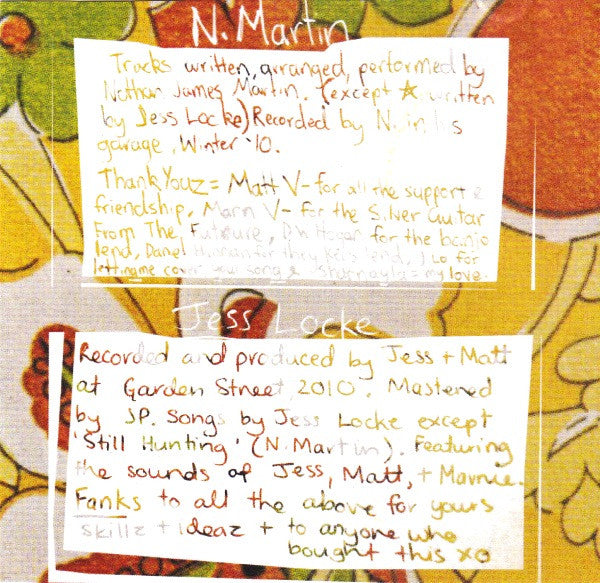 N. Martin
Tracks written, arranged, performed by
Nathan James Martin. (except ☆ written
by Jess Locke) Recorded by N. in his
garage, Winter '10.
Thank Youz = Matt V - for all the support &
friendship, Marn V - for the Silver Guitar
From The Futeure, Dn Hogan for the banjo
lend, Daniel for keys lend, J Lo for
letting me cover xu song & = my love.
Jess Locke
Recorded and produced by Jess + Matt
at Garden Street, 2010. Mastered
by JP. Songs by Jess Locke except
'Still Hunting' (N. Martin). Featuring
the sounds of Jess, Matt, + Marnie.
Fanks to all the above for yours
skillz + ideaz + to anyone who
bought this xo